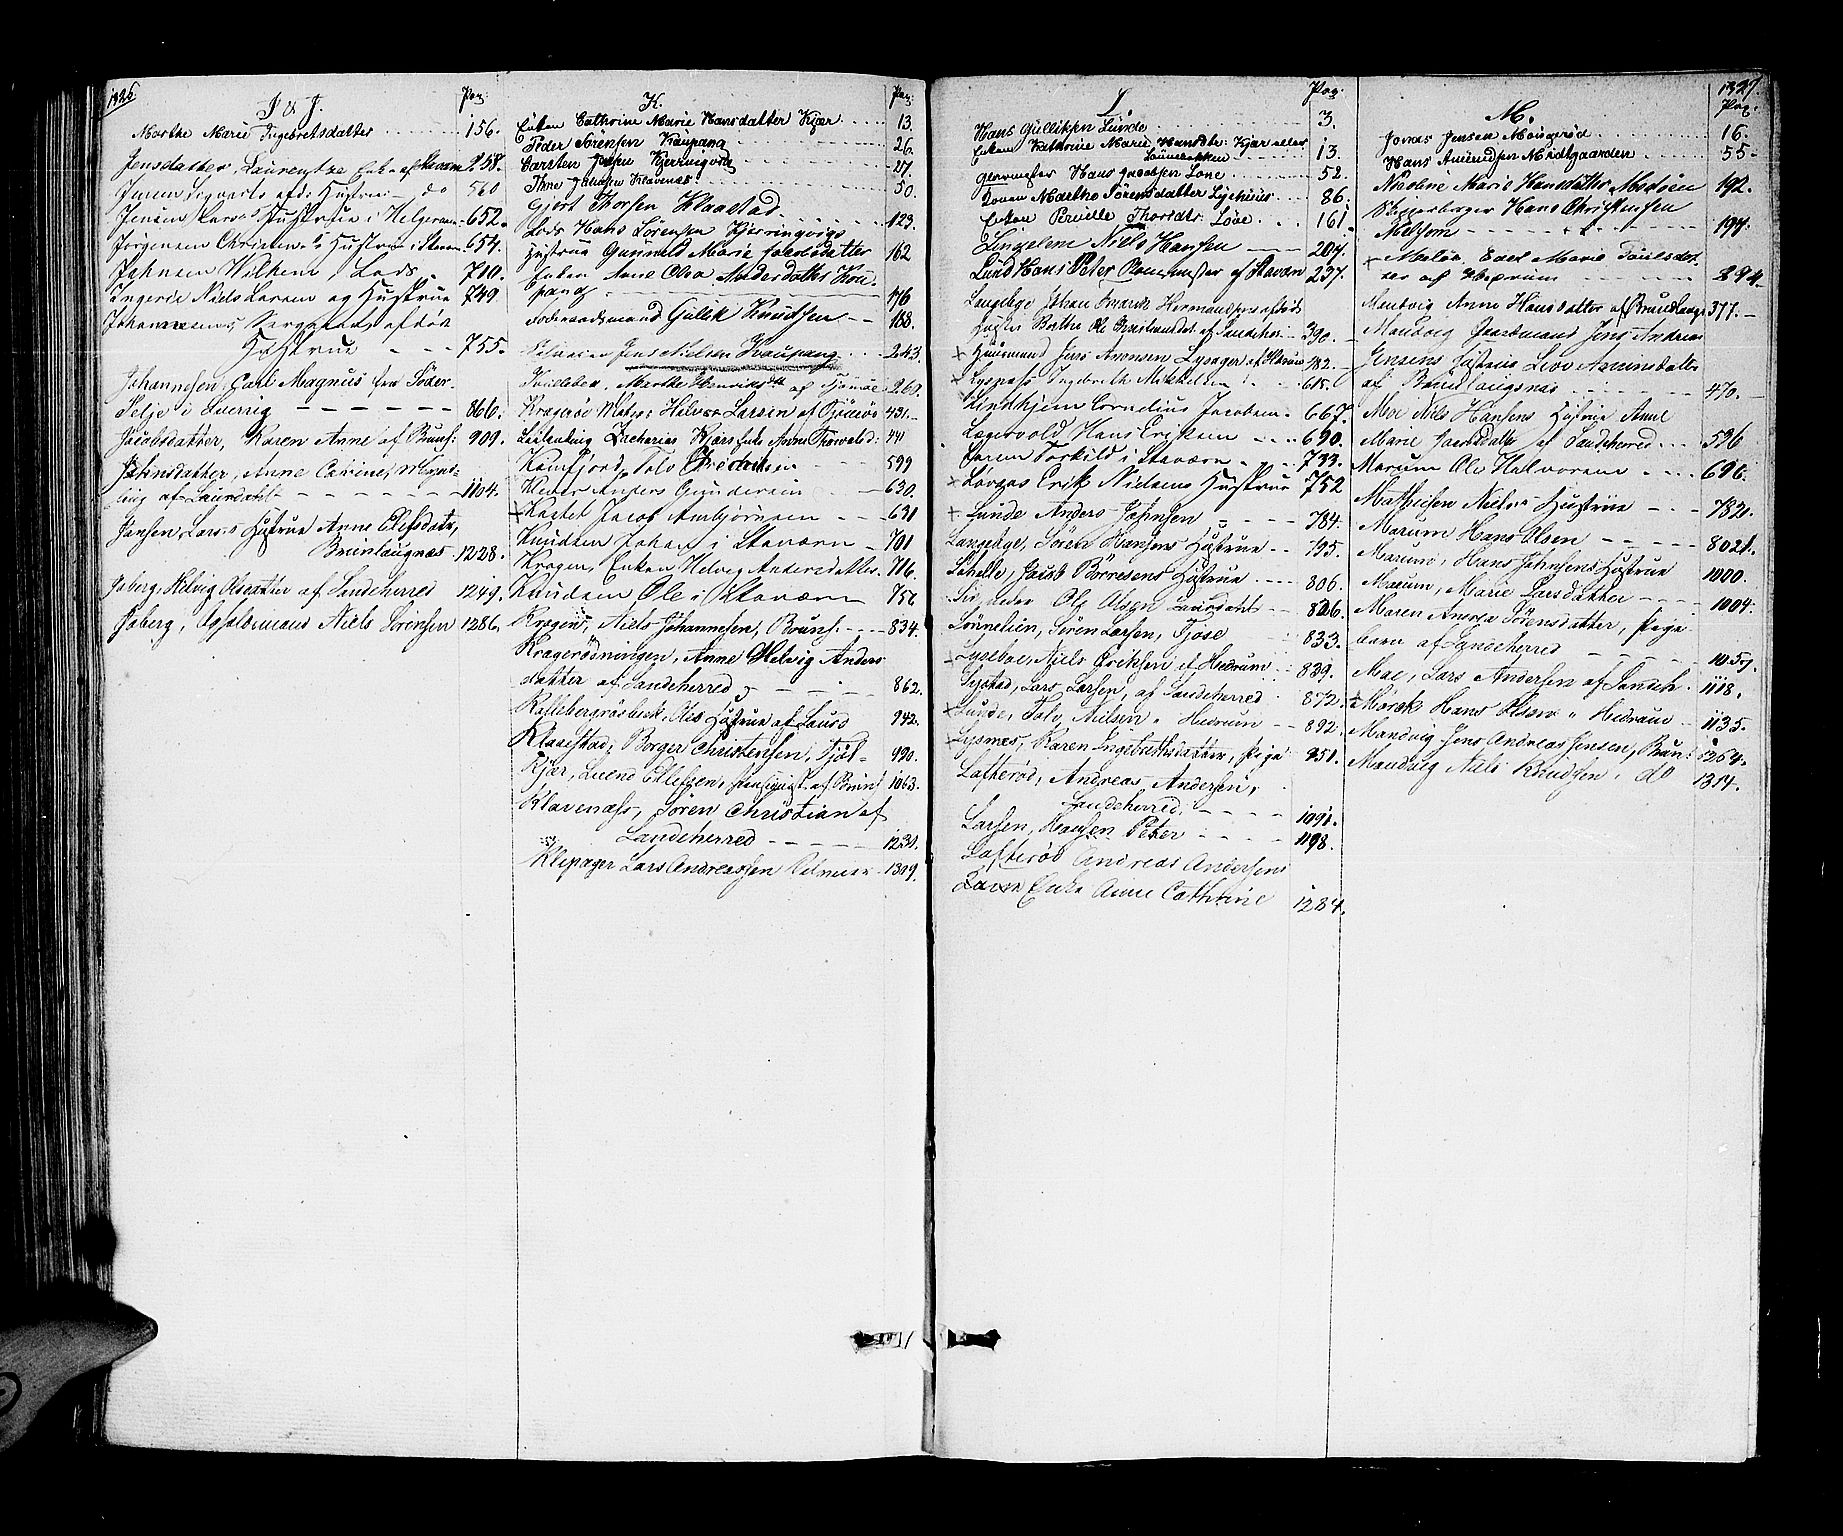 1326.
I & J.
Pag:
Marthe Marie Ingebretsdatter 156.
Jensdatter, Laurentze Enke af 258.
Jensen Sigvarts afd: Hustrue do 560
Jensen Lars's Hustrue i Helgeroen 652.
Jörgensen Christen's Hustrue i Stavern 654.
Johnsen Wilhem, Lods 710.
Ingerød Niels Larsen og Hustrue 749
Johannesens, Sergeant, afdøde
Hustrue 755.
Johannesen, Carl Magnus fra Söder-
Telje i Sverrig 866.
Jacobsdatter, Karen Anne af Brunl: 909.
Johnsdatter, Anne Cathrine, Myndt-
ling af Laurdahl 1104.
Jensen Lars's Hustrue Anne Olefsdatr,
Brunlaugnæs 1228.
Joberg, Helvig Olsdatter af Sandeherred 1249.
Joberg, Opholdsmand Niels Sörensen 1286.
K.
Pag:
Enken Cathrine Marie Hansdatter Kjær 13.
Peder Sörensen Kaupang 26.
Carsten Jensen Kjerringvig 27.
Thne Johnsen Klavenæs 50.
Gjert Thorsen Klaastad 123.
Lods Hans Sörensen Kjerringvigs
Hustrue Gunnild Marie Jacobsdatter 162
Enken Anne Olea Andersdatter Kou-
pang 176
Föderaadsmand Gullik Knudsen 188.
Jens Nielsen Kaupang 243.
Marthe Henriksdtr af Tjömöe 260.
Kragerøe Mathis Halvor Larsen af Tjömöe 431.
Zacharias Kjærs Enke Anne Torvald: 441
Kamfjord, Tolv Fredriksen 599
Klever Anders Gundersen 630.
× Kastet Jacob Ambjörnsen 631
Knudsen Johan i Stavern 701
Krogen, Enken Helvig Andersdatter 716.
Knudsen Ole i Stavern 756
Krogen, Niels Johannesen, Brunl. 834.
Kragerödningen, Anne Helvig Anders
datter af Sandeherred 862.
Kallebergrösbæk, Oles Hustrue af Laurd 942.
Klaaestad, Borger Christensen, Tjöl- 990.
Kjær, Svend Ellefsen, af Brunl 1063.
Klavenæss, Sören Christian af
Sandeherred 1230.
Klepager Lars Andreassen 1309.
1327
L.
Pag:
Hans Gulliksen Lunde 3.
Enken Kathrine Marie Hansdtr: Kjær eller
Lönnebakken 13.
Hans Jacobsen Lone 52.
Konen Marthe Sörensdatter Lychuus 86.
Enken Pernille Thorsdtr. Löve 161.
Lingelem Niels Hansen 204.
Lund Hans Peter af Stavern 237.
Langebye Johan Fredrik Hermandsens afdöde
Hustrue Berthe af Sandehr: 390.
× Huusmand Jens Aronsen Lysager af Hedrum 482.
× Lyspass Ingebreth Mikkelsen 615.
× Lindhjem Cornelius Jacobsen 667.
Lægervold Hans Eriksen 690.
Larsen Torkild i Stavern 733.
× Lövaas Erik Nielsens Hustrue 752
× Lunde Anders Johnsen 784.
Langebye, Sören Hansens Hustrue 795.
Lahelle, Jacob Börresens Hustrue 806.
Ole Olsen Laurdahl 826.
Lönnelien, Sören Larsen, Tjose 833.
× Lysebøe, Niels Eriksen af Hedrum 839.
Lystad, Lars Larsen, af Sandeherred 872.
× Lunde, Tolv Nielsen " Hedrum 892.
× Lysnæs, Karen Ingebrethsdatter, Pige 951.
Lofterød, Andreas Andersen,
Sandeherred, 1091.
Larsen, Hansen Peter 1198.
Lofterød Andreas Andersens
Enke Anne Cathrine 1284.
M.
Pag:
Jonas Jensen Moigerød 16.
Hans Amundsen Midtgaarden 55.
Nicoline Marie Hansdatter Medöen 192.
Skipperborger Hans Christensen
Mellzom 194.
× Edel Marie Poulsdat-
ter af Hedrum 294.
Mentvig Anne Hansdatter af Brunlaugn 377.
Mandvig Gaardmand Jens Andreas
Jensens Hustrue Live Amundsdatter
af Brunlaugnæs 470.
Moe Niels Hansens Hustrue Anne
Marie Jacobsdatter af Sandeherred 536
Marum Ole Halvorsen 696.
Mathisen Niels's Hustrue 782.
Marum Hans Olsen 802.
Marum, Hans Johnsens Hustrue 1000.
Marum, Marie Larsdatter 1004.
Maren Andrea Sörensdatter, Pige
barn af Sandeherred 1057.
Moe, Lars Andersen af Sandeh. 1118.
× Mörck Hans Olsen " Hedrum 1135.
Mandvig Jens Andreas Jensen, Brun: 1264.
Mandvig Niels Knudsen. do 1314.